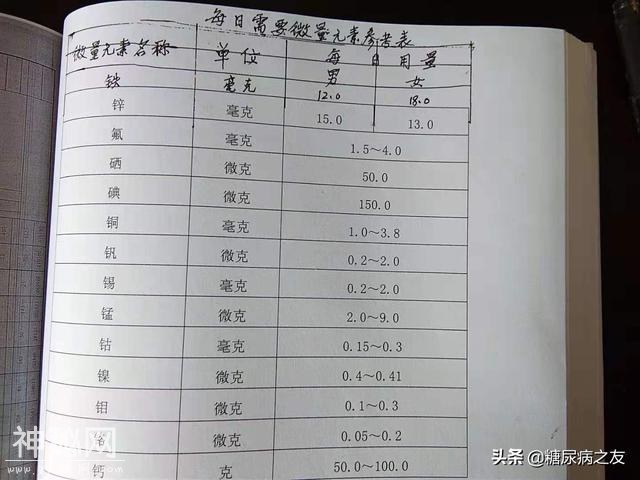 每日需要微量元素参考表
微量元素名称 单位 每日用量
男 女
铁 毫克 12.0 18.0
锌 毫克 15.0 13.0
氟 毫克 1.5~4.0
硒 微克 50.0
碘 微克 150.0
铜 毫克 1.0~3.8
钒 微克 0.2~2.0
锡 毫克 0.2~2.0
锰 微克 2.0~9.0
钴 毫克 0.15~0.3
镍 微克 0.4~0.41
钼 微克 0.1~0.3
微克 0.05~0.2
钙 克 50.0~100.0
神秘网
WWW.
头条 @糖尿病之友